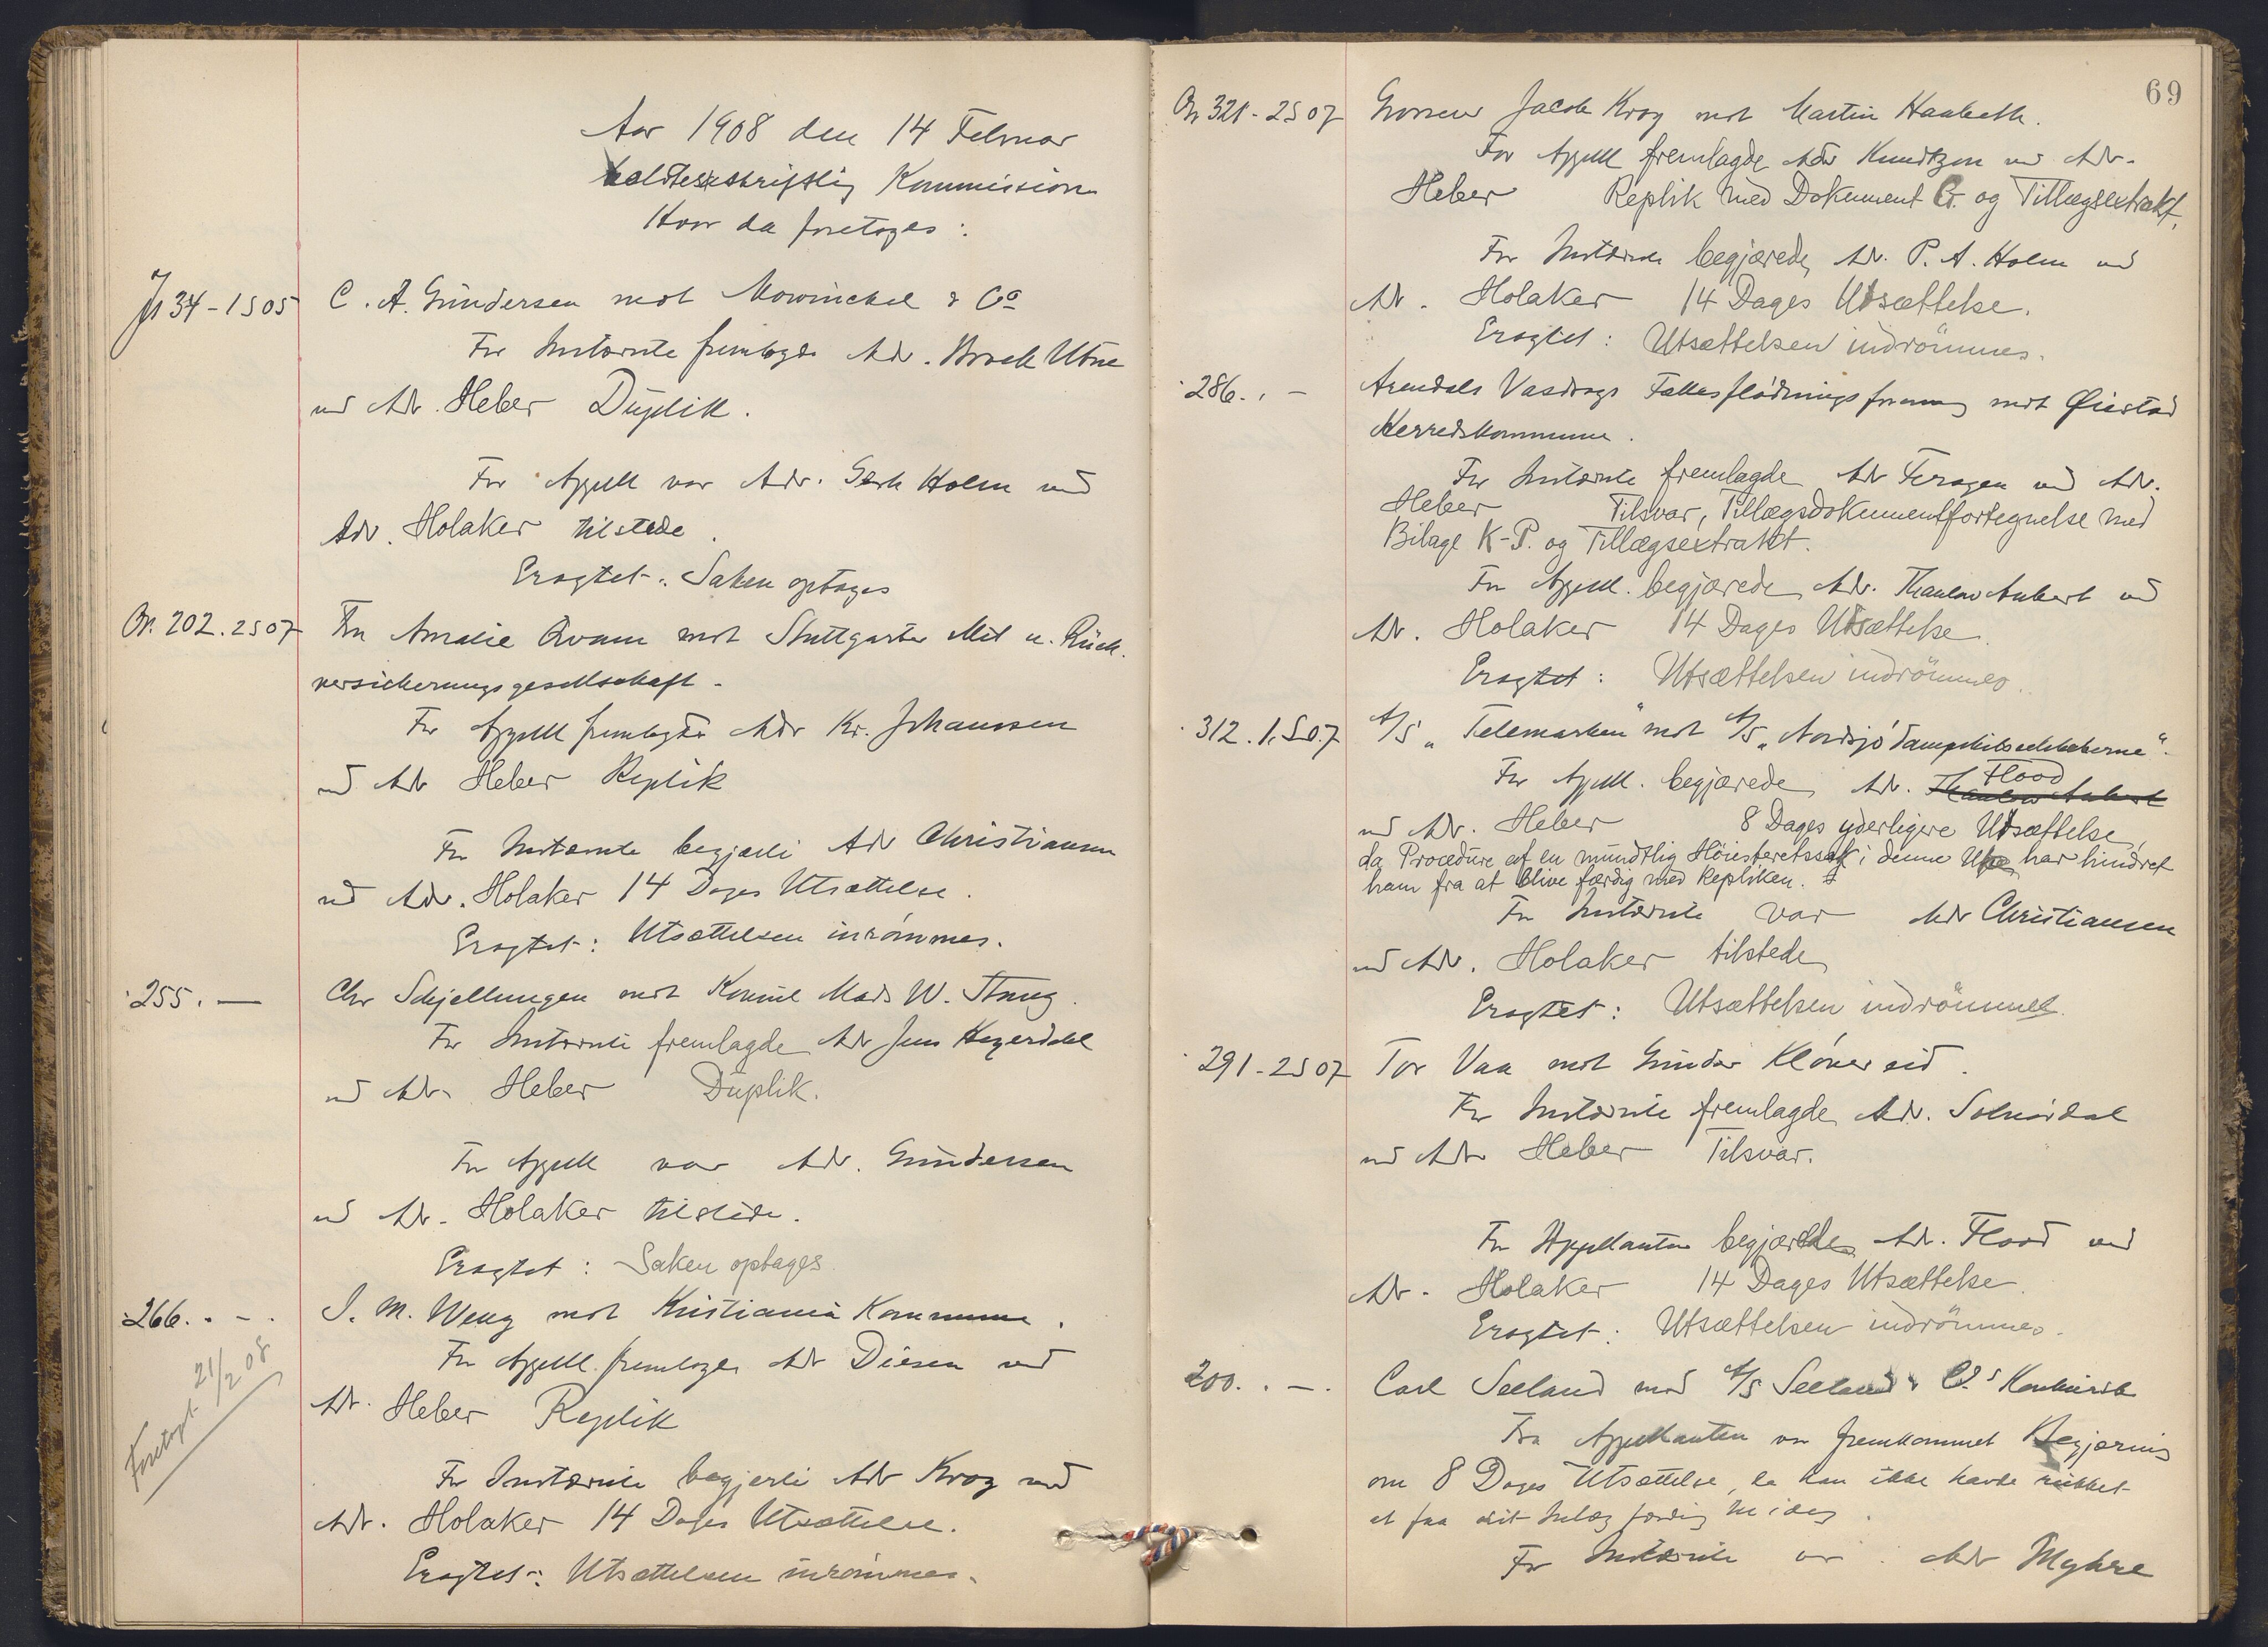 Aar 1908 den 14 Februar
holdtes skriftlig Kommission
Hvor da foretoges:
Js 34-1S05
C. A. Gundersen mot Mowinckel & Co
For Indstevnte fremlagde Adv. Broch Utne
ved Adv. Heber Duplik.
For Appell var Adv. Gerh Holm ved
Adv. Holaker tilstede.
Eragtet: Saken optages
Or. 202. 2S07
Fru Amalie Qvam mot Stuttgarter Mit u. Rück.
versicherungsgesellschaft.
For Appell fremlagde Adv Kr. Johanssen
ved Adv Heber Replik
For Indstevnte begjærte Adv Christiansen
ved Adv. Holaker 14 Dages Utsættelse.
Eragtet: Utsættelsen inrömmes.
255. —
Chr Schjellungen mot Konsul Mads W. Stang.
For Indstevnte fremlagde Adv Jens Heyerdahl
ved Adv. Heber Duplik.
For Appell var Adv. Gundersen
ved Adv. Holaker tilstede.
Eragtet: Saken optages
266. . - .
Foretagt 21/2 08
J. M. Weng mot Kristiania Kommune.
For Appell. fremlagde Adv Diesen ved
Adv. Heber Replik
For Indstevnte begjærte Adv Krog ved
Adv. Holaker 14 Dages Utsættelse.
Eragtet: Utsættelsen inrömmes.
69
Or 321-2S07
Grosserer Jacob Krog mot Martin Haabeth.
For Appell fremlagde Adv Knudtzon ved Adv.
Heber Replik med Dokument G. og Tillægsextrakt.
For Indstevnte begjærede Adv. P. A. Holm ved
Adv. Holaker 14 Dages Utsættelse.
Eragtet: Utsættelsen indrömmes.
286. . -
Arendals Vasdrags Fællesflødningsforening mot Øiestad
Herredskommune.
For Indstevnte fremlagde Adv Feragen ved Adv.
Heber Tilsvar, Tillægsdokumentfortegnelse med
Bilage K-P. og Tillægsextrakt.
For Appell. begjærede Adv. Thaulow Aubert ved
Adv. Holaker 14 Dages Utsættelse.
Eragtet: Utsættelsen indrömmes.
312. 1. S0.7
A/S "Telemarken" mot A/S "Nordsjö Dampskibsselskaberne".
For Appell. begjærede Adv. Thaulow Aubert Flood
ved Adv. Heber 8 Dages yderligere Utsættelse,
da Procedure af en mundtlig Höiesteretssak i denne Uke har hindret
ham fra at blive færdig med Repliken.
For Indstevnte var Adv Christiansen
ved Adv. Holaker tilstede
Eragtet: Utsættelsen indrömmes.
291-2S07
Tor Vaa mot Gunder Klövereid.
For Indstevnte fremlagde Adv. Solnördal
ved Adv Heber Tilsvar.
For Appellanten begjærede Adv. Flood ved
Adv. Holaker 14 Dages Utsættelse.
Eragtet: Utsættelsen indrömmes.
200. . - .
Carl Seeland mod A/S Seeland & Co's Konkursbo
Fra Appellanten var fremkommet Begjæring
om 8 Dages Utsættelse, da han ikke havde rukket
at faa sit Indlæg færdig til idag.
For Indstevnte var Adv Myhre